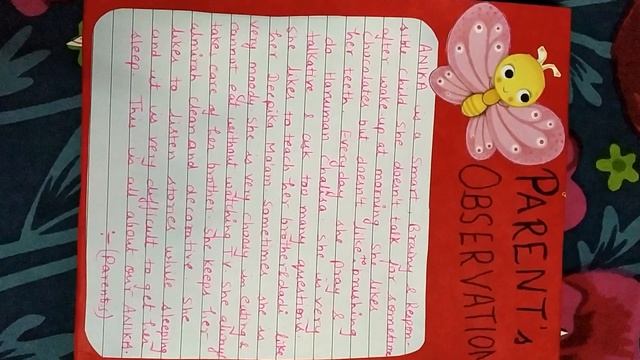 PARENT's
OBSERVATION
ANIKA is a Smart, Brainy & Respon-
sible child she doesn't talk for sometime
after wake-up at morning. She likes
chocolates but doesn't like to brushing
her teeth Everyday she pray &
do Hanuman chalisa. she is very
talkative & ask too many questions.
She likes to teach her brother & dadi like
her Deepika Ma'am sometimes she is
very moody. she is very choosy in eating &
cannot eat without watching TV she always
take care of her brother. she keeps her
almirah clean and decorative. she
likes to listen stories while sleeping
and it is very difficult to get her
sleep. This is all about our
:- (Parents)